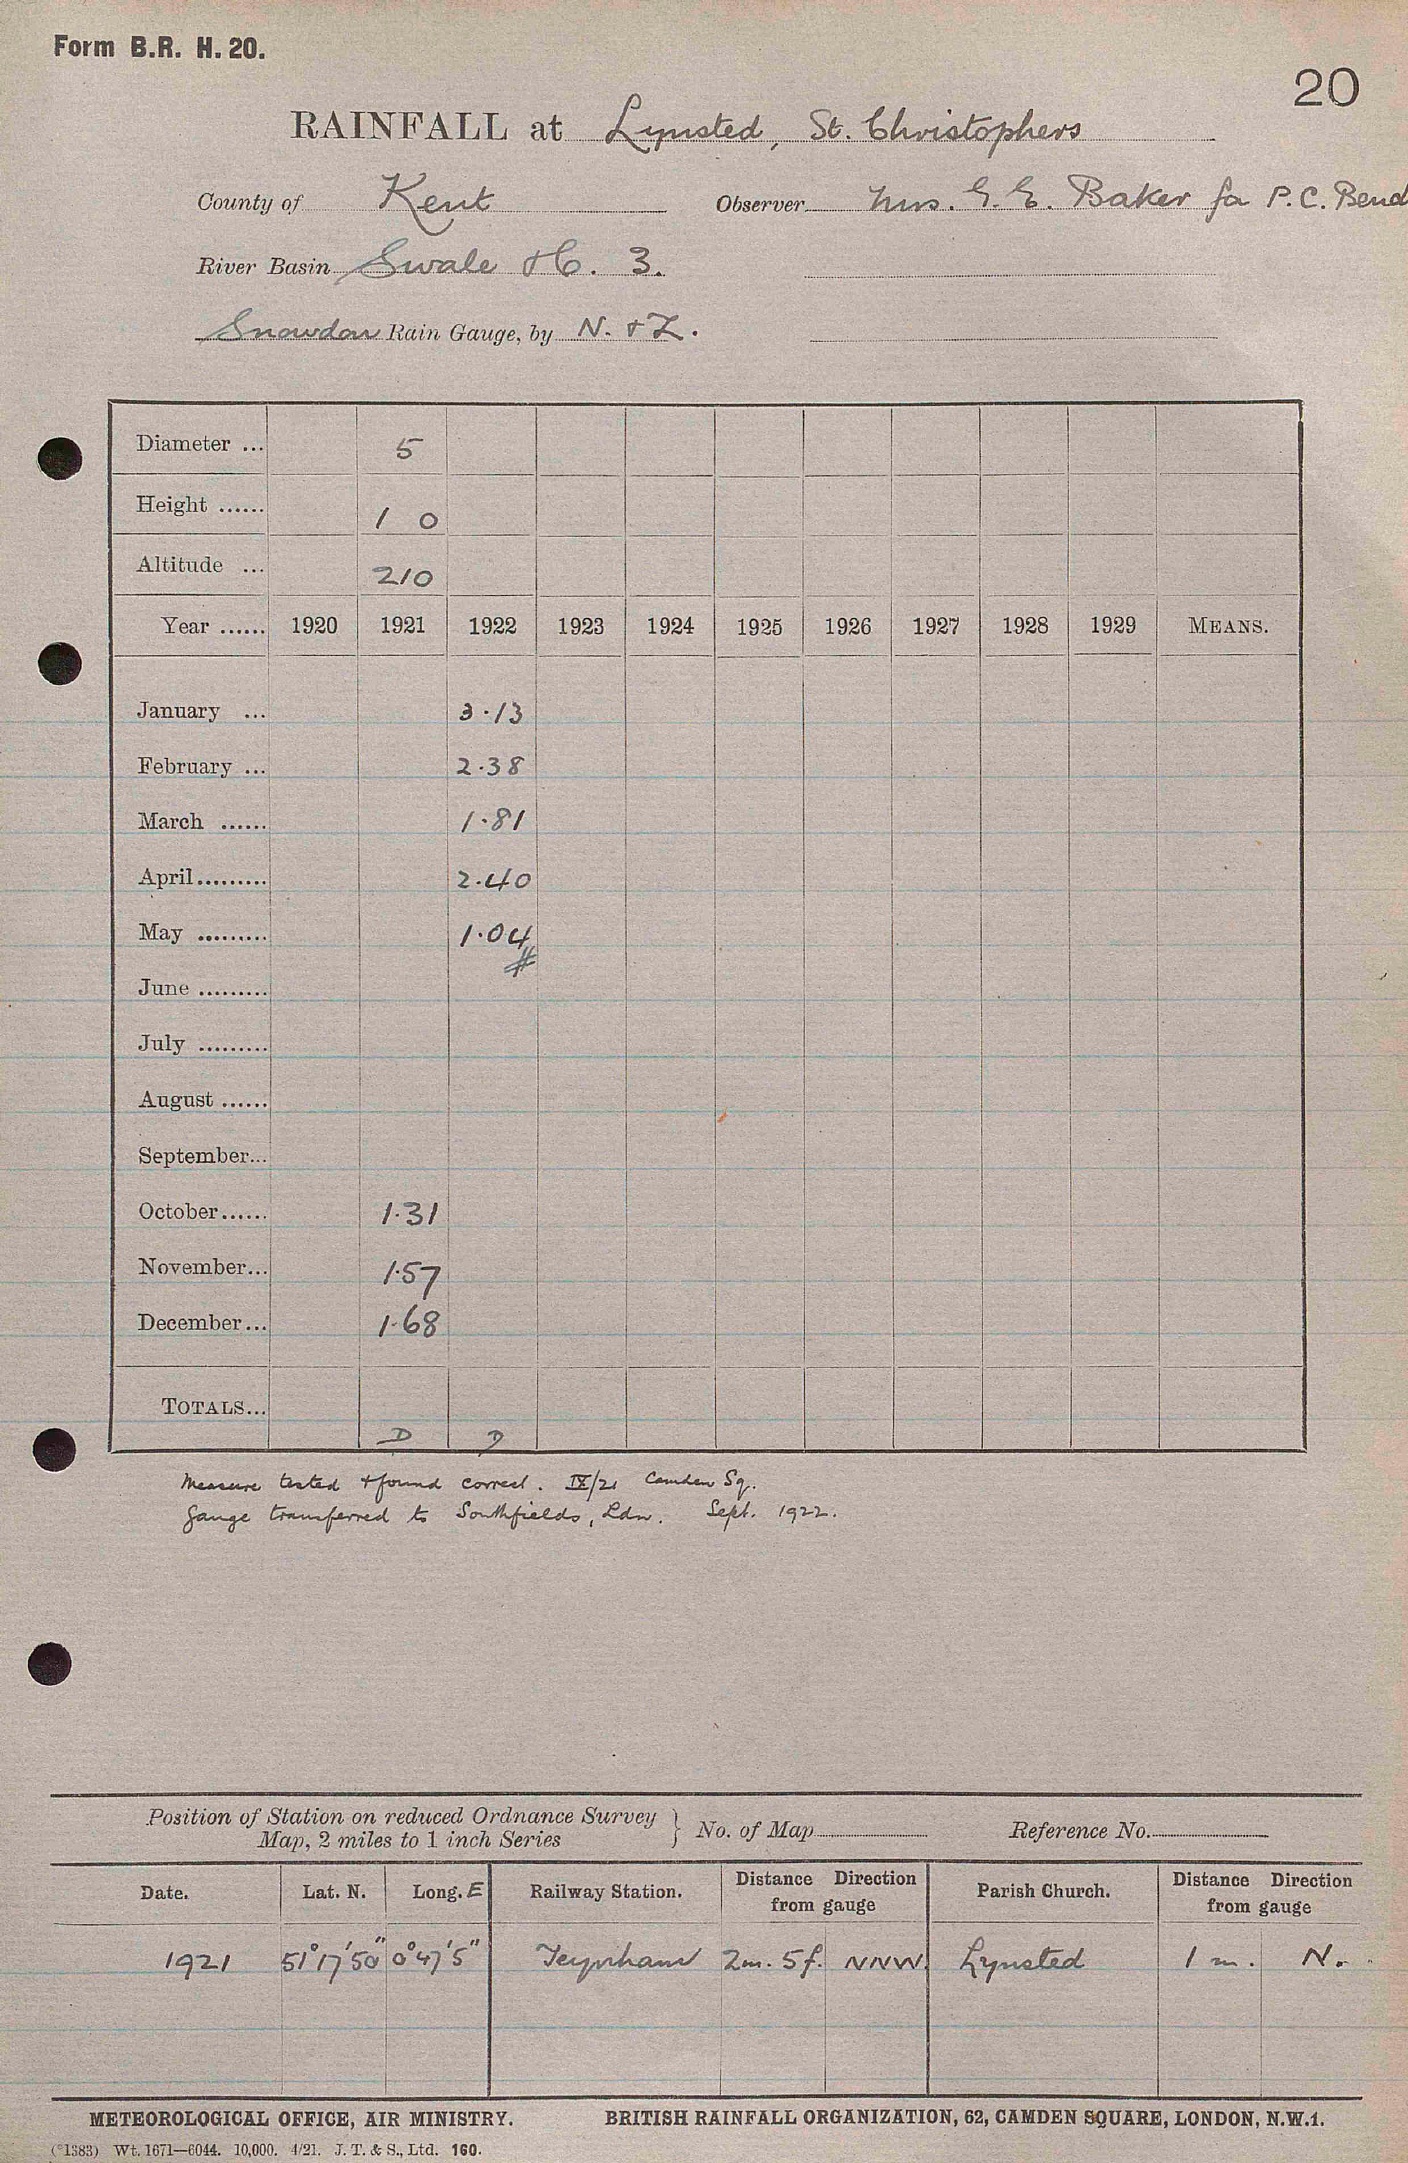 Form B.R. H. 20.
20
RAINFALL at Lynsted, St. Christophers
County of Kent Observer Mrs. G. E. Baker for P.C. Bend
River Basin Swale &c. 3.
Snowdon Rain Gauge, by N. & Z.
Diameter ... 5
Height ...... 1 0
Altitude ... 210
Year ...... 1920 1921 1922 1923 1924 1925 1926 1927 1928 1929 MEANS.
January ... 3.13
February ... 2.38
March ...... 1.81
April ......... 2.40
May ......... 1.04
#
June .........
July .........
August ......
September...
October ...... 1.31
November... 1.57
December... 1.68
TOTALS...
D D
Measure tested & found correct. IX/21 Camden Sq.
Gauge transferred to Southfields, Ldn. Sept. 1922.
Position of Station on reduced Ordnance Survey
Map, 2 miles to 1 inch Series } No. of Map Reference No.
Date. Lat. N. Long. E Railway Station. Distance Direction from gauge Parish Church. Distance Direction from gauge
1921 51°17'50" 0°47'5" Teynham 2m. 5f. NNW. Lynsted 1 m. N.
METEOROLOGICAL OFFICE, AIR MINISTRY. BRITISH RAINFALL ORGANIZATION, 62, CAMDEN SQUARE, LONDON, N.W.1.
(*1383) Wt. 1671—6044. 10,000. 4/21. J. T. & S., Ltd. 160.